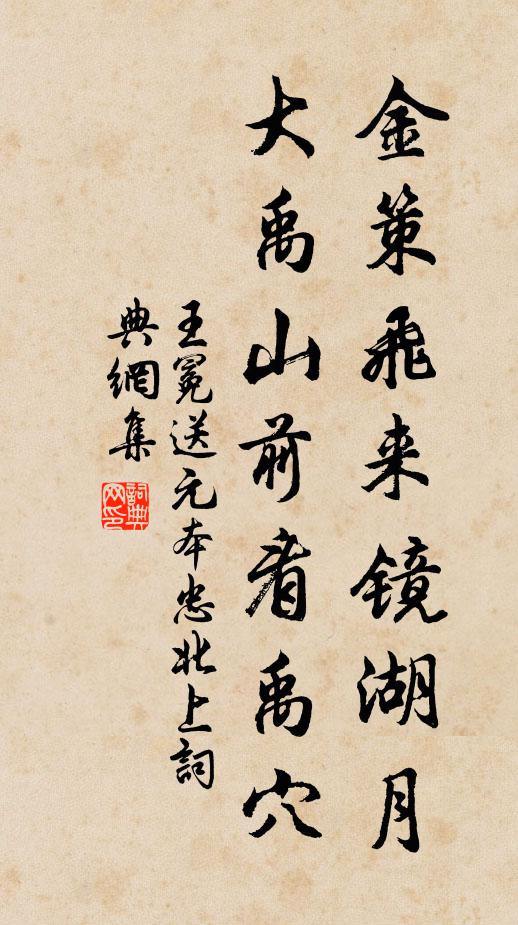 金策飛来镜湖月
大禹山前看禹穴
王冕送元本忠北上詞
典網集
詞典网印